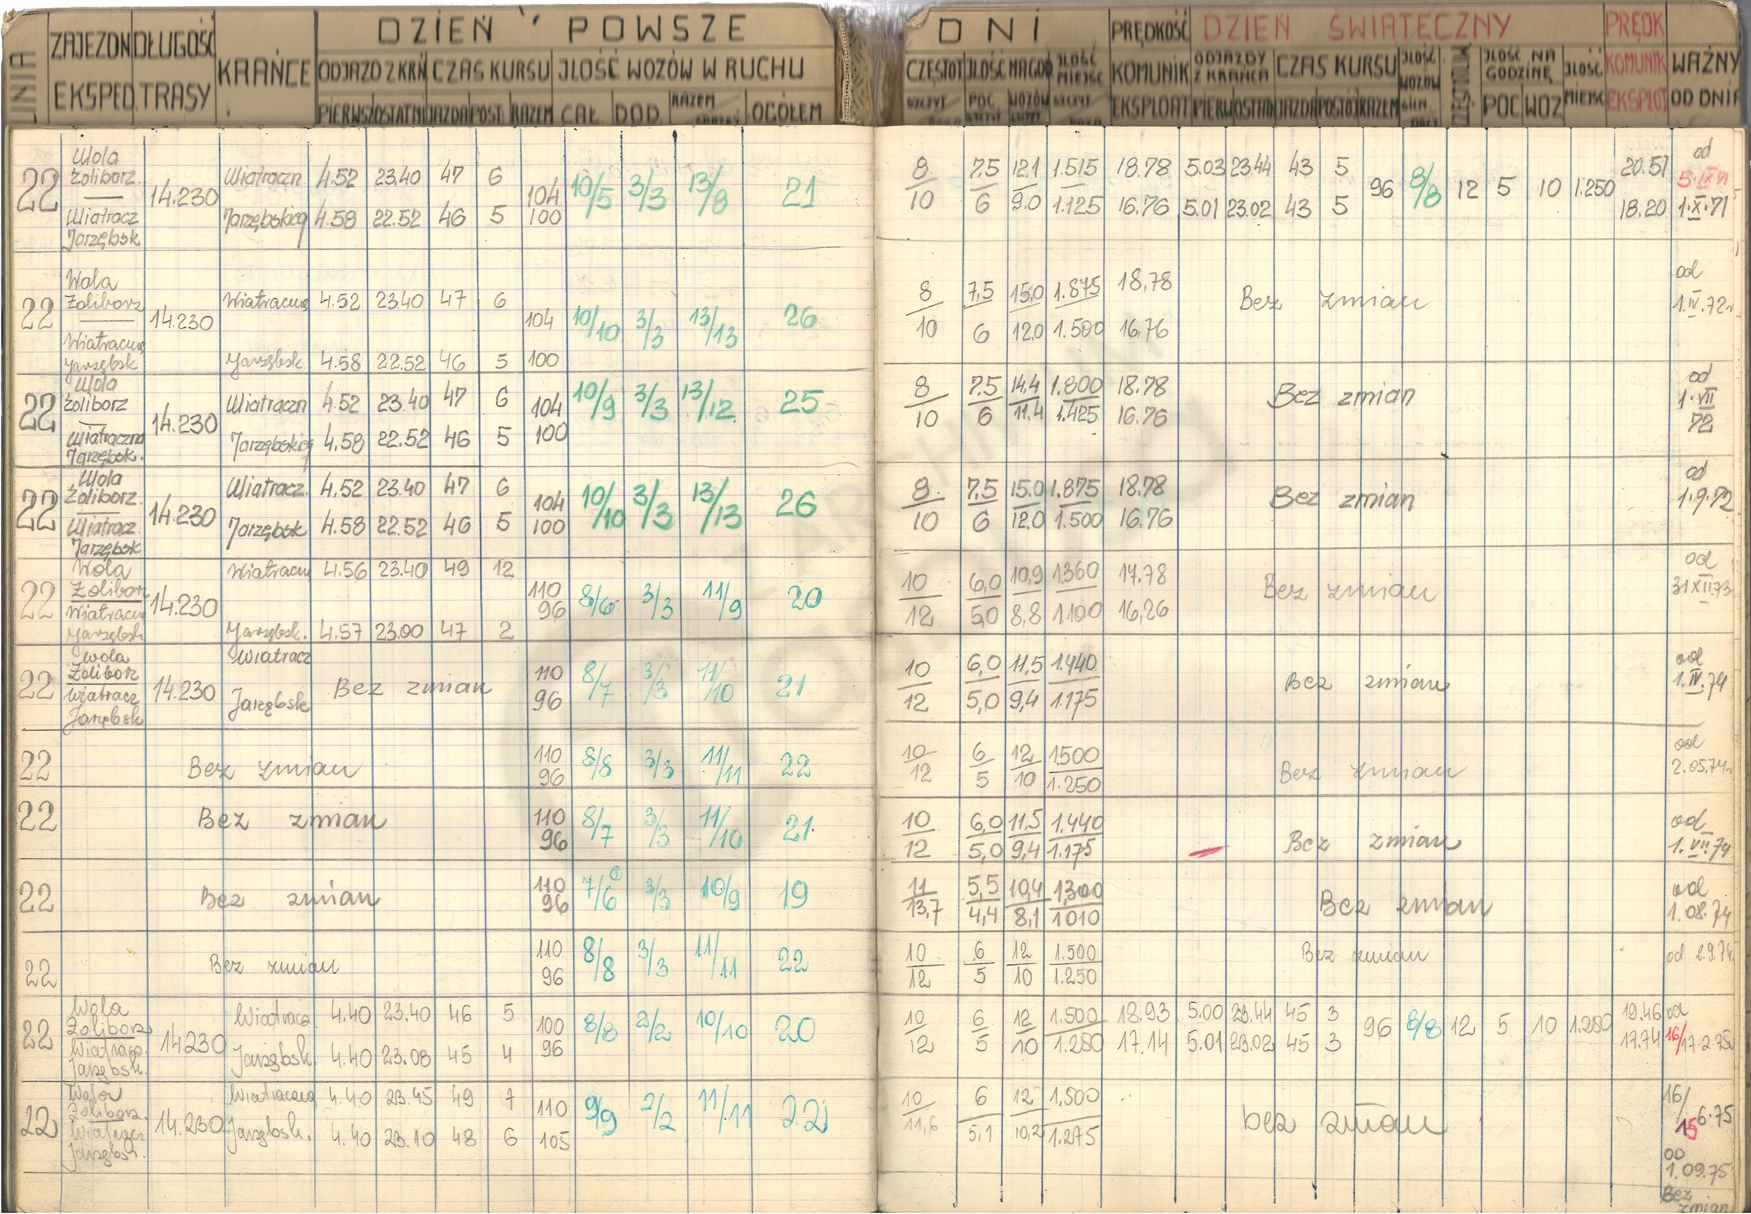 LINIA ZAJEZDN. EKSPED. DŁUGOŚĆ TRASY KRAŃCE DZIEŃ POWSZE DNI PRĘDKOŚĆ KOMUNIK EKSPLOAT DZIEŃ ŚWIĄTECZNY PRĘDK KOMUNIK EKSPLOT WAŻNY OD DNIA
ODJAZD Z KRAŃ CZAS KURSU JLOŚĆ WOZÓW W RUCHU CZĘSTOT JLOŚĆ NA GOD JLOŚĆ MIEJSC ODJAZDY Z KRAŃCA CZAS KURSU JLOŚĆ WOZÓW JLOŚĆ NA GODZINĘ JLOŚĆ MIEJSC
PIERWSZ OSTATNI JAZDA POST. RAZEM CAŁ. DOD. RAZEM OGÓŁEM SZCZYT POC. WOZÓW SZCZYT PIERW OSTATN JAZDA POSTÓJ RAZEM POC WOZ
22 Wola Żoliborz Wiatracz Jarzębsk 14.230
Wiatraczn 4.52 23.40 47 6 104 10/5 3/3 13/8 21 8/10 7,5 12,1 1.515 18.78 5.03 23.44 43 5 96 8/8 12 5 10 1.250 20.51 od 5.IX.71
Jarzębskieg 4.58 22.52 46 5 100 6 9.0 1.125 16.76 5.01 23.02 43 5 18.20 1.X.71
22 Wola Żoliborz Wiatraczn Jarzębsk 14.230
Wiatraczn 4.52 23.40 47 6 104 10/10 3/3 13/13 26 8/10 7,5 15,0 1.875 18,78 Bez zmian od 1.IV.72r
Jarzębsk 4.58 22.52 46 5 100 6 12,0 1.500 16,76
22 Wola Żoliborz Wiatraczna Jarzębsk. 14.230
Wiatraczn 4.52 23.40 47 6 104 10/9 3/3 13/12 25 8/10 7.5 14,4 1.800 18.78 Bez zmian od 1.VII 72
Jarzębskieg 4.58 22.52 46 5 100 6 11.4 1.425 16.76
22 Wola Żoliborz. Wiatracz Jarzębsk 14.230
Wiatracz. 4.52 23.40 47 6 104 10/10 3/3 13/13 26 8/10 7,5 15.0 1.875 18.78 Bez zmian od 1.9.72
Jarzębsk 4.58 22.52 46 5 100 6 12,0 1.500 16.76
22 Wola Żolibor Wiatraczn Jarzębsk 14.230
Wiatraczn 4.56 23.40 49 12 110 8/6 3/3 11/9 20 10/12 6,0 10,9 1.360 17.78 Bez zmian od 31 XII.73
Jarzębsk. 4.57 23.00 47 2 96 5,0 8,8 1.100 16,26
22 Wola Żoliborz Wiatracz Jarzębsk 14.230 Wiatracz Jarzębsk Bez zmian 110 96 8/7 3/3 11/10 21 10/12 6,0 11,5 1.440 5,0 9,4 1.175 Bez zmian od 1.IV.74
22 Bez zmian 110 96 8/8 3/3 11/11 22 10/12 6 12 1500 5 10 1.250 Bez zmian od 2.05.74r
22 Bez zmian 110 96 8/7 3/3 11/10 21 10/12 6,0 11,5 1.440 5,0 9,4 1.175 Bez zmian od 1.VII.74
22 Bez zmian 110 96 7/6 3/3 10/9 19 11/13,7 5,5 10,4 1,300 4,4 8,1 1010 Bez zmian od 1.08.74
22 Bez zmian 110 96 8/8 3/3 11/11 22 10/12 6 12 1.500 5 10 1.250 Bez zmian od 2.9.74
22 Wola Żoliborz Wiatracz. Jarzębsk. 14.230
Wiatracz 4.40 23.40 46 5 100 8/8 2/2 10/10 20 10/12 6 12 1.500 18.93 5.00 23.44 45 3 96 8/8 12 5 10 1.280 19.46 od
Jarzębsk. 4.40 23.08 45 4 96 5 10 1.280 17.14 5.01 23.02 45 3 17.74 16/17.2.75
22 Wola Żoliborz. Wiatracz Jarzębsk. 14.230
Wiatraczna 4.40 23.45 49 7 110 9/9 2/2 11/11 22 10/11,6 6 12 1,500 bez zmian 16/15 6.75
Jarzębsk. 4.40 23.10 48 6 105 5,1 10,2 1.275
OD 1.09.75
Bez zmian